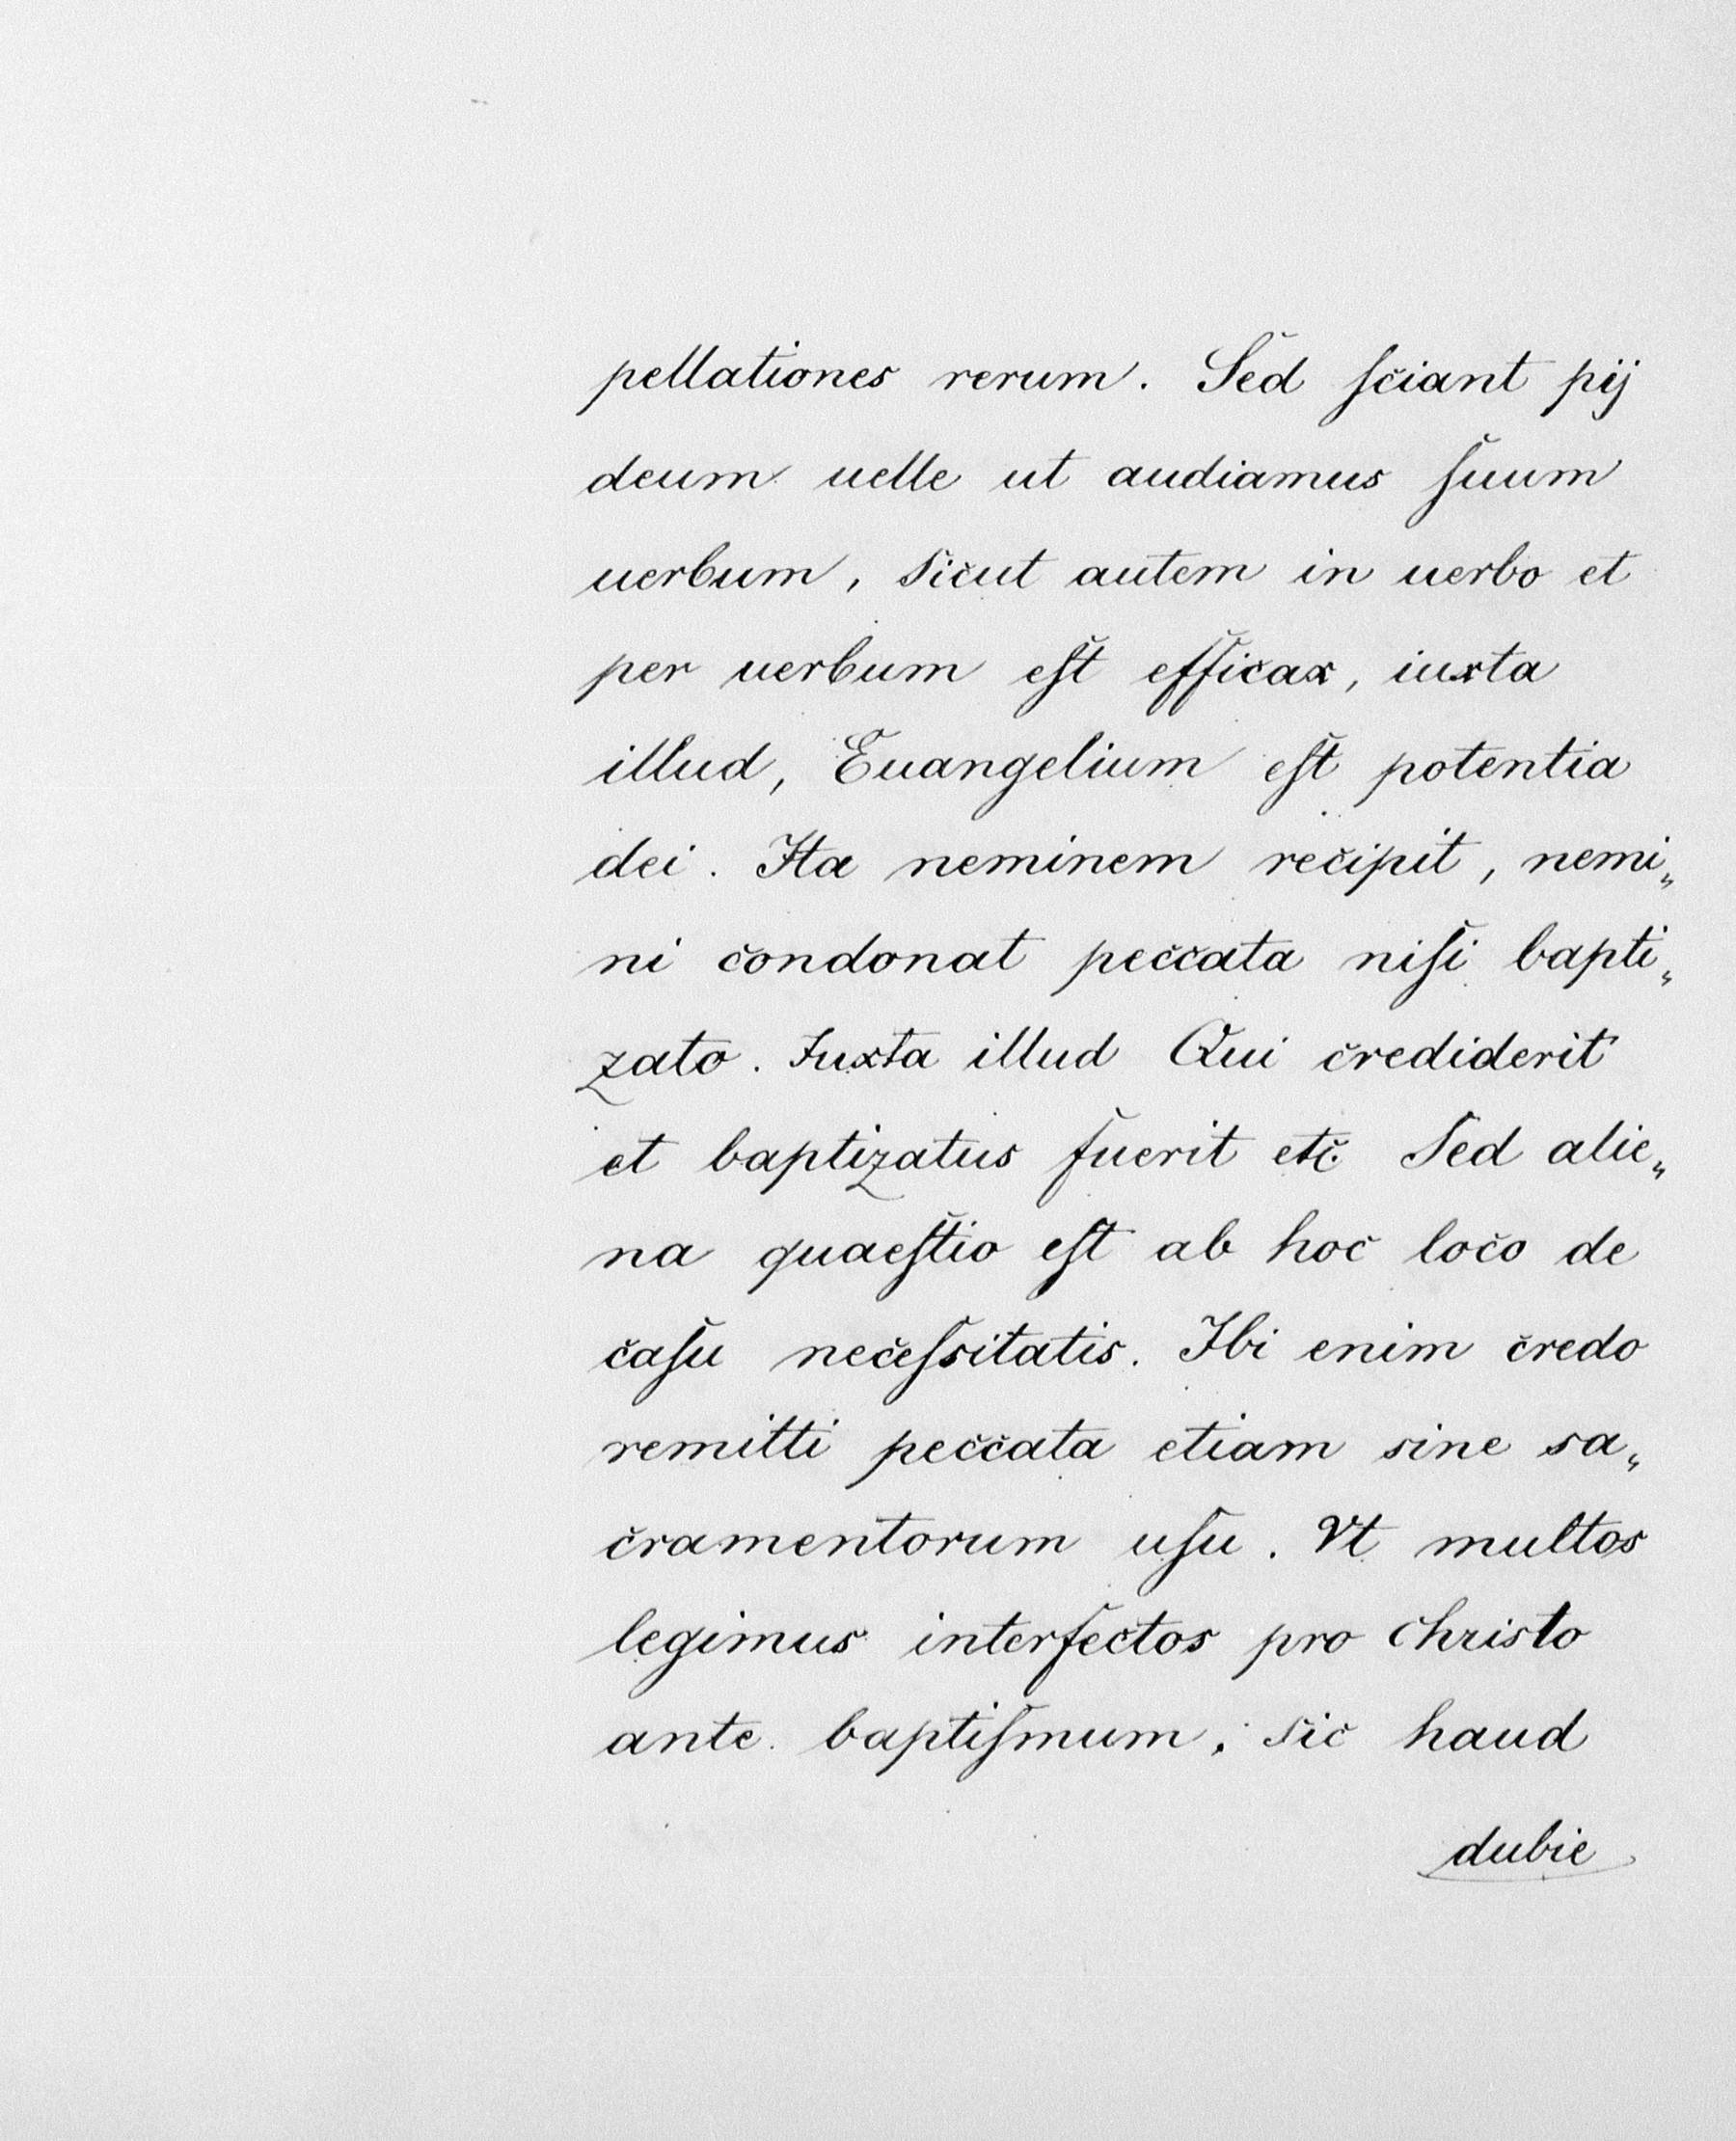 pellationes rerum. Sed ſciant pij
deum uelle ut audiamus ſuum
uerbum, sicut autem in uerbo et
per uerbum eſt efficax, iuxta
illud, Euangelium eſt potentia
dei. Ita neminem recipit, nemi„
ni condonat peccata niſi bapti„
zato. Iuxta illud Qui crediderit
et baptizatus fuerit etc. Sed alie„
na quaeſtio eſt ab hoc loco de
caſu neceſsitatis. Ibi enim credo
remitti peccata etiam sine sa„
cramentorum uſu. Vt multos
legimus interfectos pro Christo
ante baptiſmum, sic haud
dubie